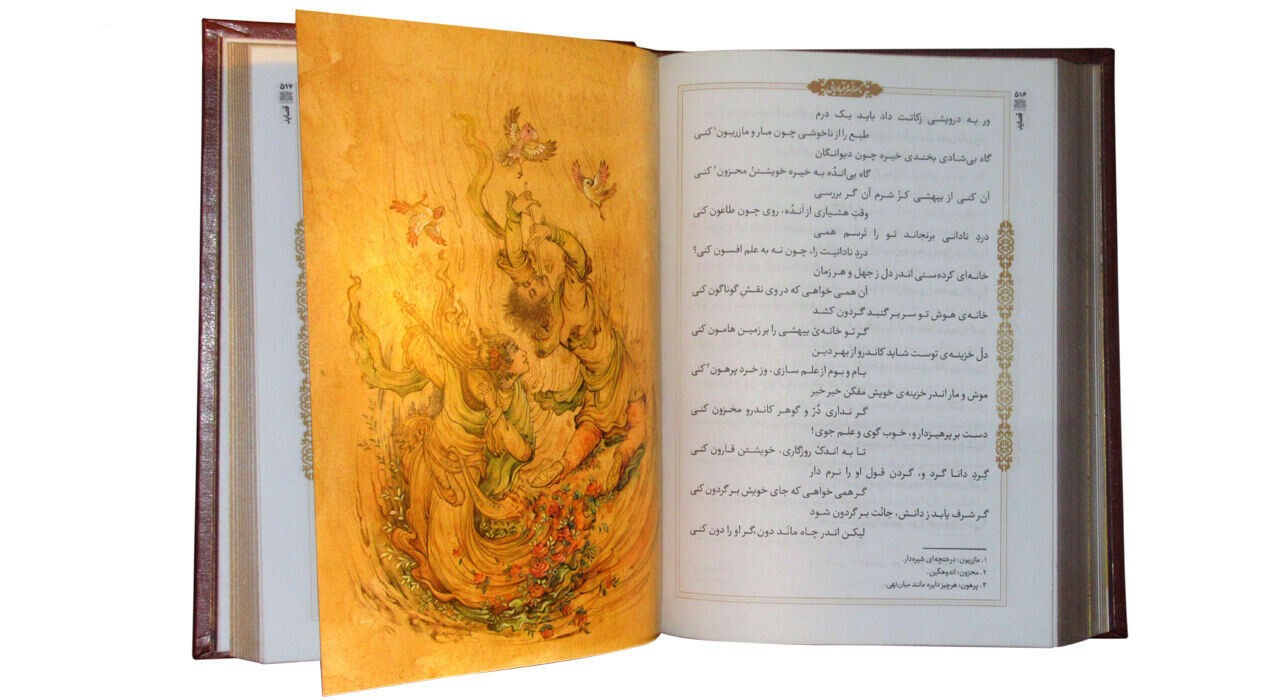 ناصر خسرو قبادیانی
۵۱۶
قصاید
ور به درویشی زکاتت داد باید یک درم
طبع را از ناخوشی چون مار و مازریون۱ کنی
گاه بی‌شادی بخندی خیره چون دیوانگان
گاه بی‌انْدُه به خیره خویشتنْ محزون۲ کنی
آن کنی از بیهشی کز شرم آن گر بررسی
وقتِ هشیاری از اَندُه، روی چون طاعون کنی
دردِ نادانی برنجاند تو را تَرسم همی
دردِ نادانیت را، چون نه به علم افسون کنی؟
خانه‌ای کرده‌ستی اندر دل ز جهل و هر زمان
آن همی خواهی که در وی نقشِ گوناگون کنی
خانه‌ی هوش تو سر بر گنبد گردون کشد
گر تو خانه‌یْ بیهشی را بر زمین هامون کنی
دلْ خزینه‌ی توست شاید کاندرو از بهر دین
بام و بوم از علم سازی، وز خرد پرهون۳ کنی
موش و مار اندر خزینه‌ی خویش مفکن خیر خیر
گر نداری دُرّ و گوهر کاندرو مخزون کنی
دست بر پرهیزدار و، خوب گوی و علم جوی!
تا به اندکْ روزگاری، خویشتن قارون کنی
گِردِ دانا گرد و، گردن قول او را نرم دار
گر همی خواهی که جای خویش بر گردون کنی
گر شرف یابد ز دانش، جانْت بر گردون شود
لیکن اندر چاه مانَد دون، گر او را دون کنی
۱. مازریون: درختچه‌ای شیره‌دار.
۲. محزون: اندوهگین.
۳. پرهون: هرچیز دایره مانند میان‌تهی.
۵۱۷
قصاید